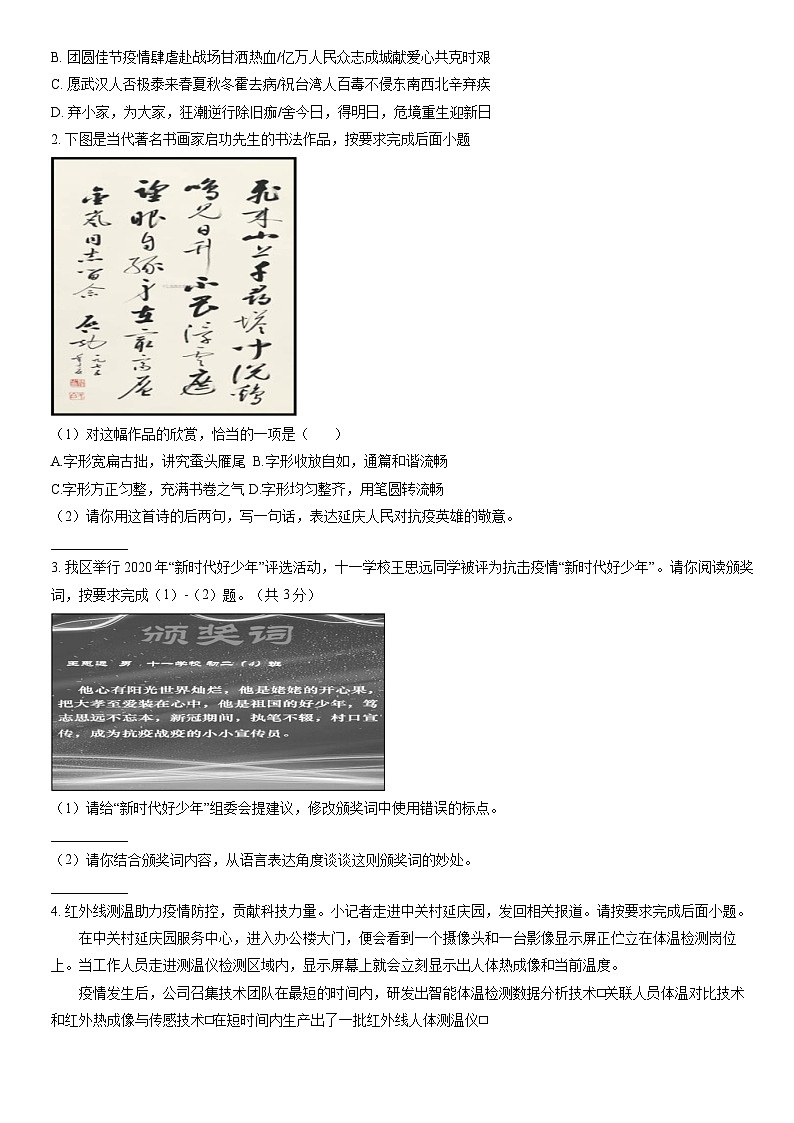 B. 团圆佳节疫情肆虐赴战场甘洒热血/亿万人民众志成城献爱心共克时艰
C. 愿武汉人否极泰来春夏秋冬霍去病/祝台湾人百毒不侵东南西北辛弃疾
D. 弃小家，为大家，狂潮逆行除旧痂/舍今日，得明日，危境重生迎新日
2. 下图是当代著名书画家启功先生的书法作品，按要求完成后面小题
飞来山上千寻塔 闻说鸡
鸣见日升 不畏浮云遮
望眼 自缘身在最高层
启功
（1）对这幅作品的欣赏，恰当的一项是（　　）
A.字形宽扁古拙，讲究蚕头雁尾 B.字形收放自如，通篇和谐流畅
C.字形方正匀整，充满书卷之气 D.字形均匀整齐，用笔圆转流畅
（2）请你用这首诗的后两句，写一句话，表达延庆人民对抗疫英雄的敬意。
___________
3. 我区举行 2020 年“新时代好少年”评选活动，十一学校王思远同学被评为抗击疫情“新时代好少年”。请你阅读颁奖
词，按要求完成（1）-（2）题。（共 3 分）
颁奖词
王思远 男 十一学校 初二（4）班
他心有阳光世界灿烂，他是姥姥的开心果，
把大孝至爱装在心中，他是祖国的好少年，笃
志思远不忘本，新冠期间，执笔不辍，村口宣
传，成为抗疫战疫的小小宣传员。
（1）请给“新时代好少年”组委会提建议，修改颁奖词中使用错误的标点。
___________
（2）请你结合颁奖词内容，从语言表达角度谈谈这则颁奖词的妙处。
___________
4. 红外线测温助力疫情防控，贡献科技力量。小记者走进中关村延庆园，发回相关报道。请按要求完成后面小题。
在中关村延庆园服务中心，进入办公楼大门，便会看到一个摄像头和一台影像显示屏正伫立在体温检测岗位
上。当工作人员走进测温仪检测区域内，显示屏幕上就会立刻显示出人体热成像和当前温度。
疫情发生后，公司召集技术团队在最短的时间内，研发出智能体温检测数据分析技术□关联人员体温对比技术
和红外热成像与传感技术□在短时间内生产出了一批红外线人体测温仪□